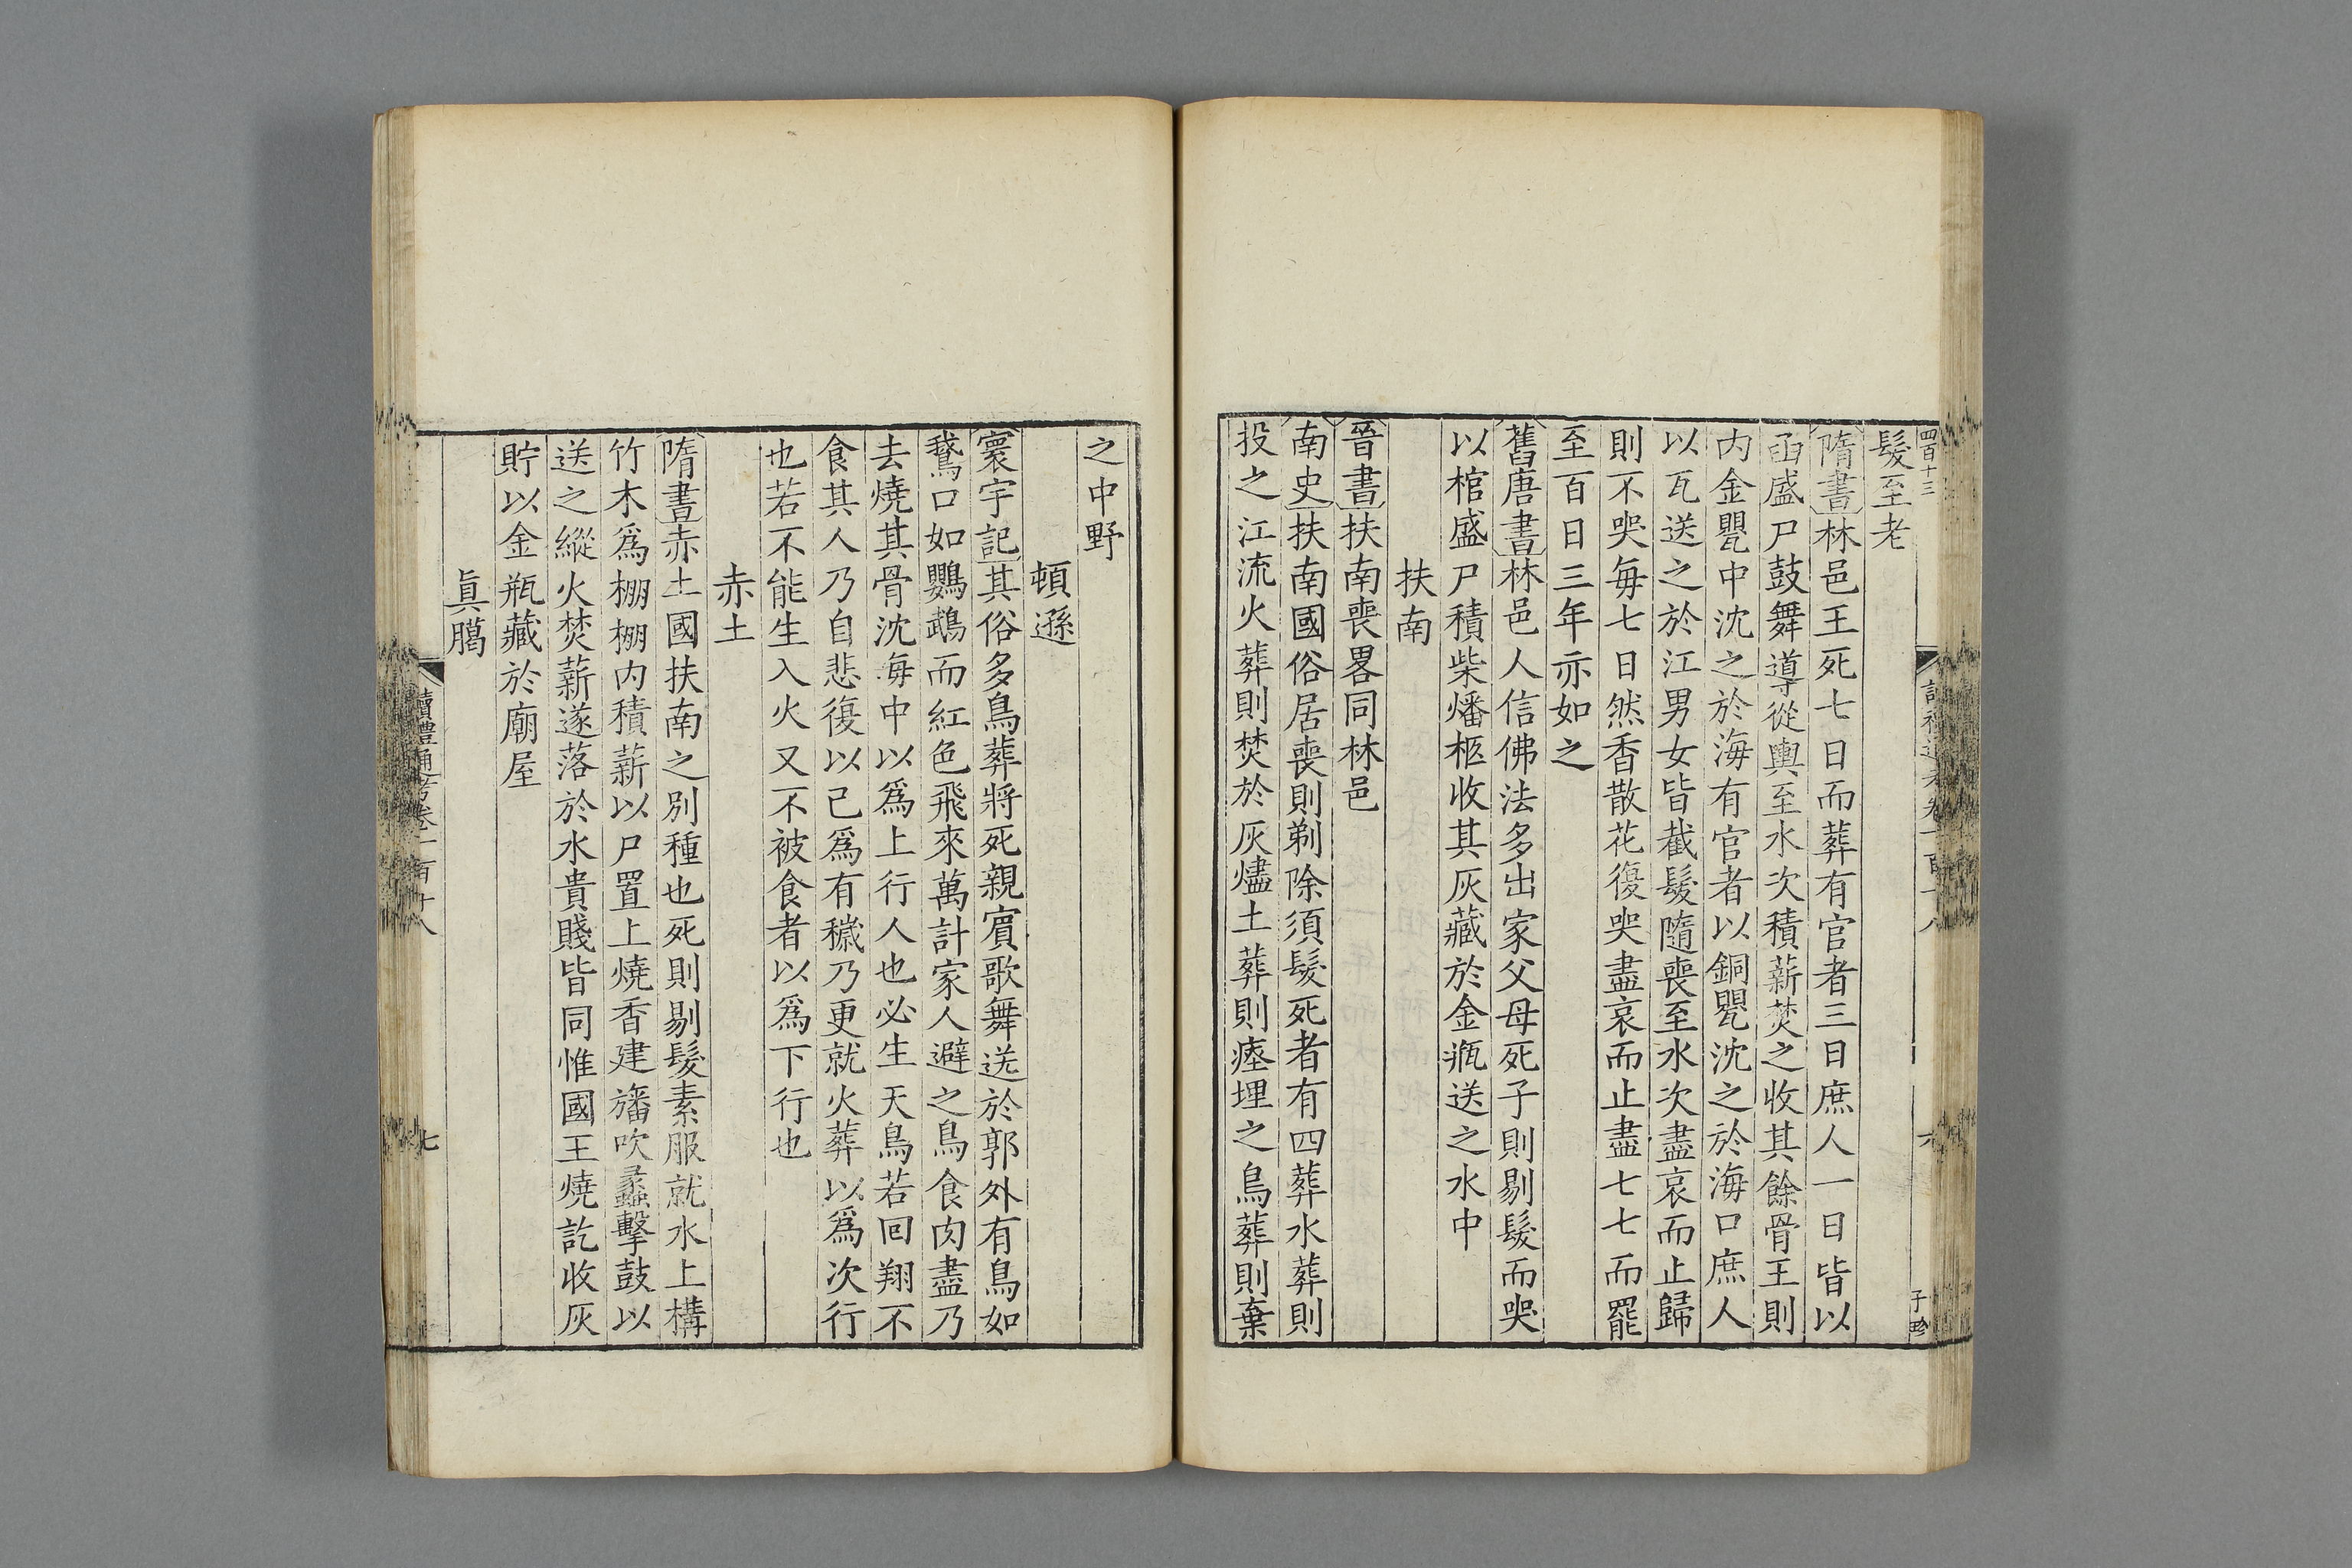 四百十三
髮至老
隋書林邑王死七日而葬有官者三日庶人一日皆以
函盛尸鼓舞導從輿至水次積薪焚之收其餘骨王則
内金甖中沈之於海有官者以銅甖沈之於海口庶人
以瓦送之於江男女皆截髮隨喪至水次盡哀而止歸
則不哭每七日然香散花復哭盡哀而止盡七七而罷
至百日三年亦如之
舊唐書林邑人信佛法多出家父母死子則剔髮而哭
以棺盛尸積柴燔柩收其灰藏於金瓶送之水中
扶南
晉書扶南喪畧同林邑
南史扶南國俗居喪則剃除須髮死者有四葬水葬則
投之江流火葬則焚於灰燼土葬則瘞埋之鳥葬則棄
之中野
頓遜
寰宇記其俗多鳥葬將死親賓歌舞送於郭外有鳥如
鵞口如鸚鵡而紅色飛來萬計家人避之鳥食肉盡乃
去燒其骨沈海中以爲上行人也必生天鳥若回翔不
食其人乃自悲復以己爲有穢乃更就火葬以爲次行
也若不能生入火又不被食者以爲下行也
赤土
隋書赤土國扶南之别種也死則剔髮素服就水上構
竹木爲棚棚内積薪以尸置上燒香建旛吹蠡擊鼓以
送之縱火焚薪遂落於水貴賤皆同惟國王燒訖收灰
貯以金瓶藏於廟屋
眞臈
讀禮通考卷一百十八
七